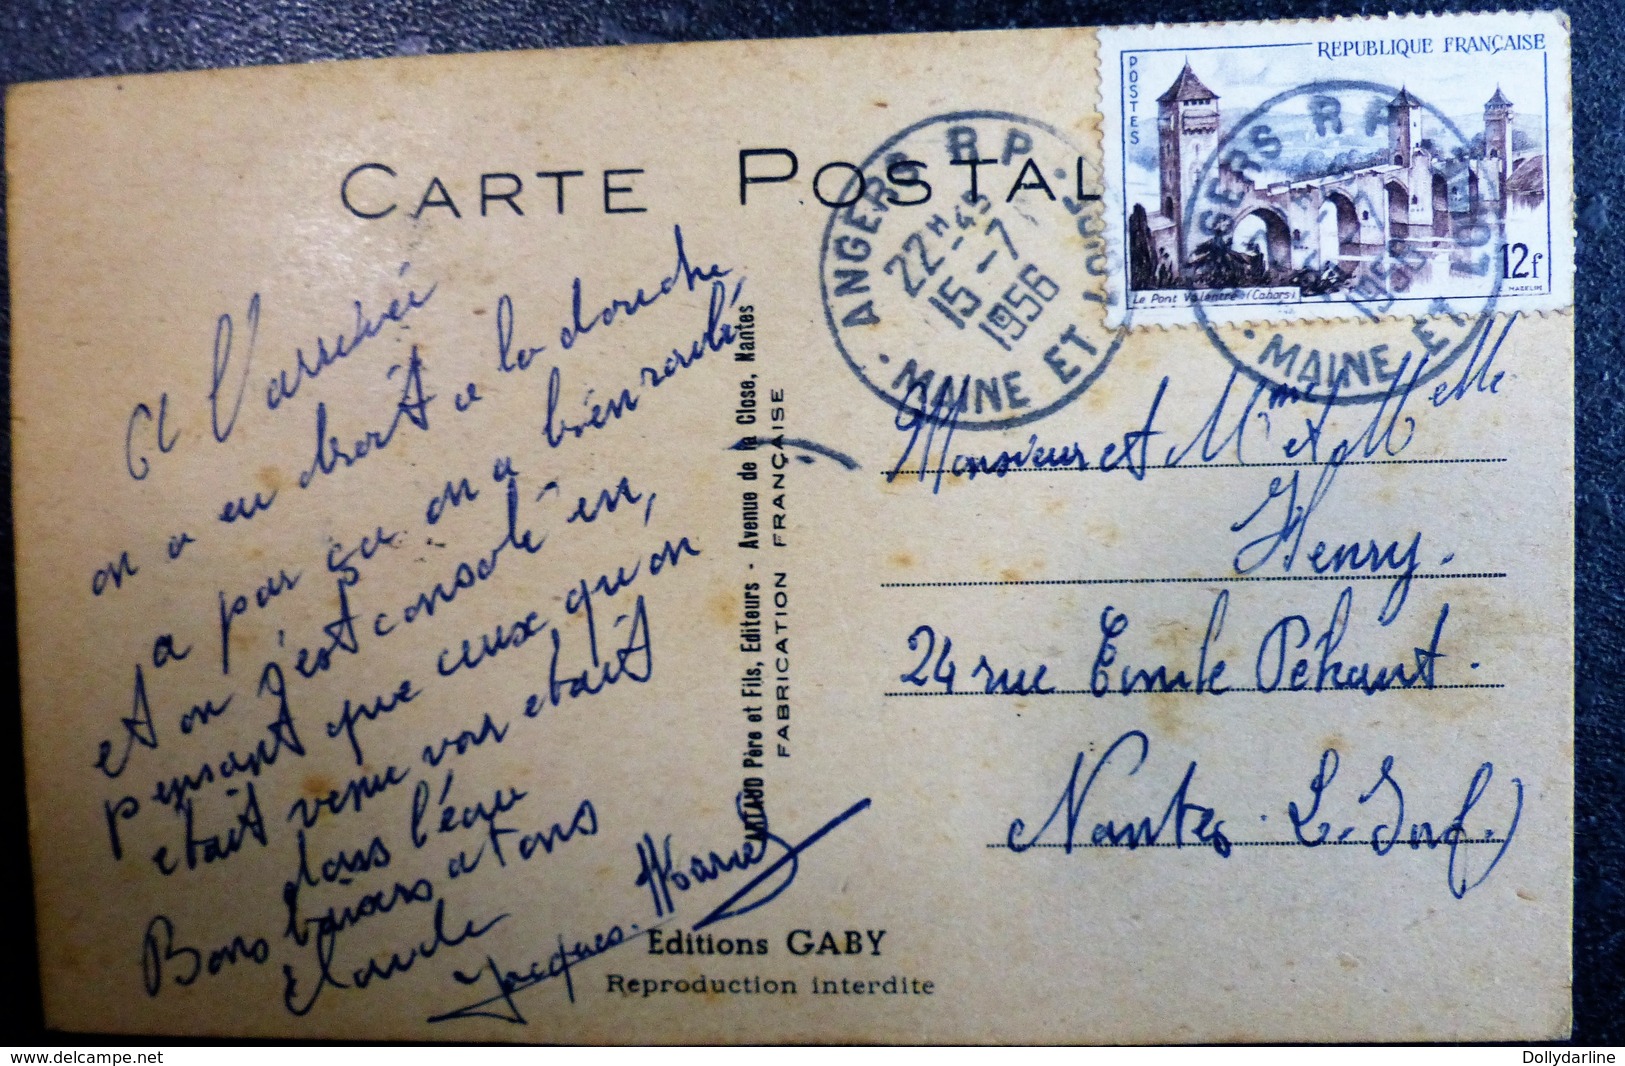 CARTE POSTAL
REPUBLIQUE FRANÇAISE
POSTES
12f
Le Pont Valentré (Cahors)
ANGERS RP
22H-45
15-7
1956
MAINE ET LOIRE
ANGERS RP
1956
MAINE ET LOIRE
A l'arrivée
on a eu droit a la douche
a par ça on a bien roulé,
et on s'est consolé en
pensant que ceux que on
était venu voir était
dans l'eau
Bons baisers a tous
Claude
Jacques
ARTAUD Père et Fils, Editeurs - Avenue de la Close, Nantes
FABRICATION FRANÇAISE
Monsieur et Mme et Melle
Henry.
24 rue Emile Péhant.
Nantes. L-Inf.
Editions GABY
Reproduction interdite
Dollydarline
www.delcampe.net